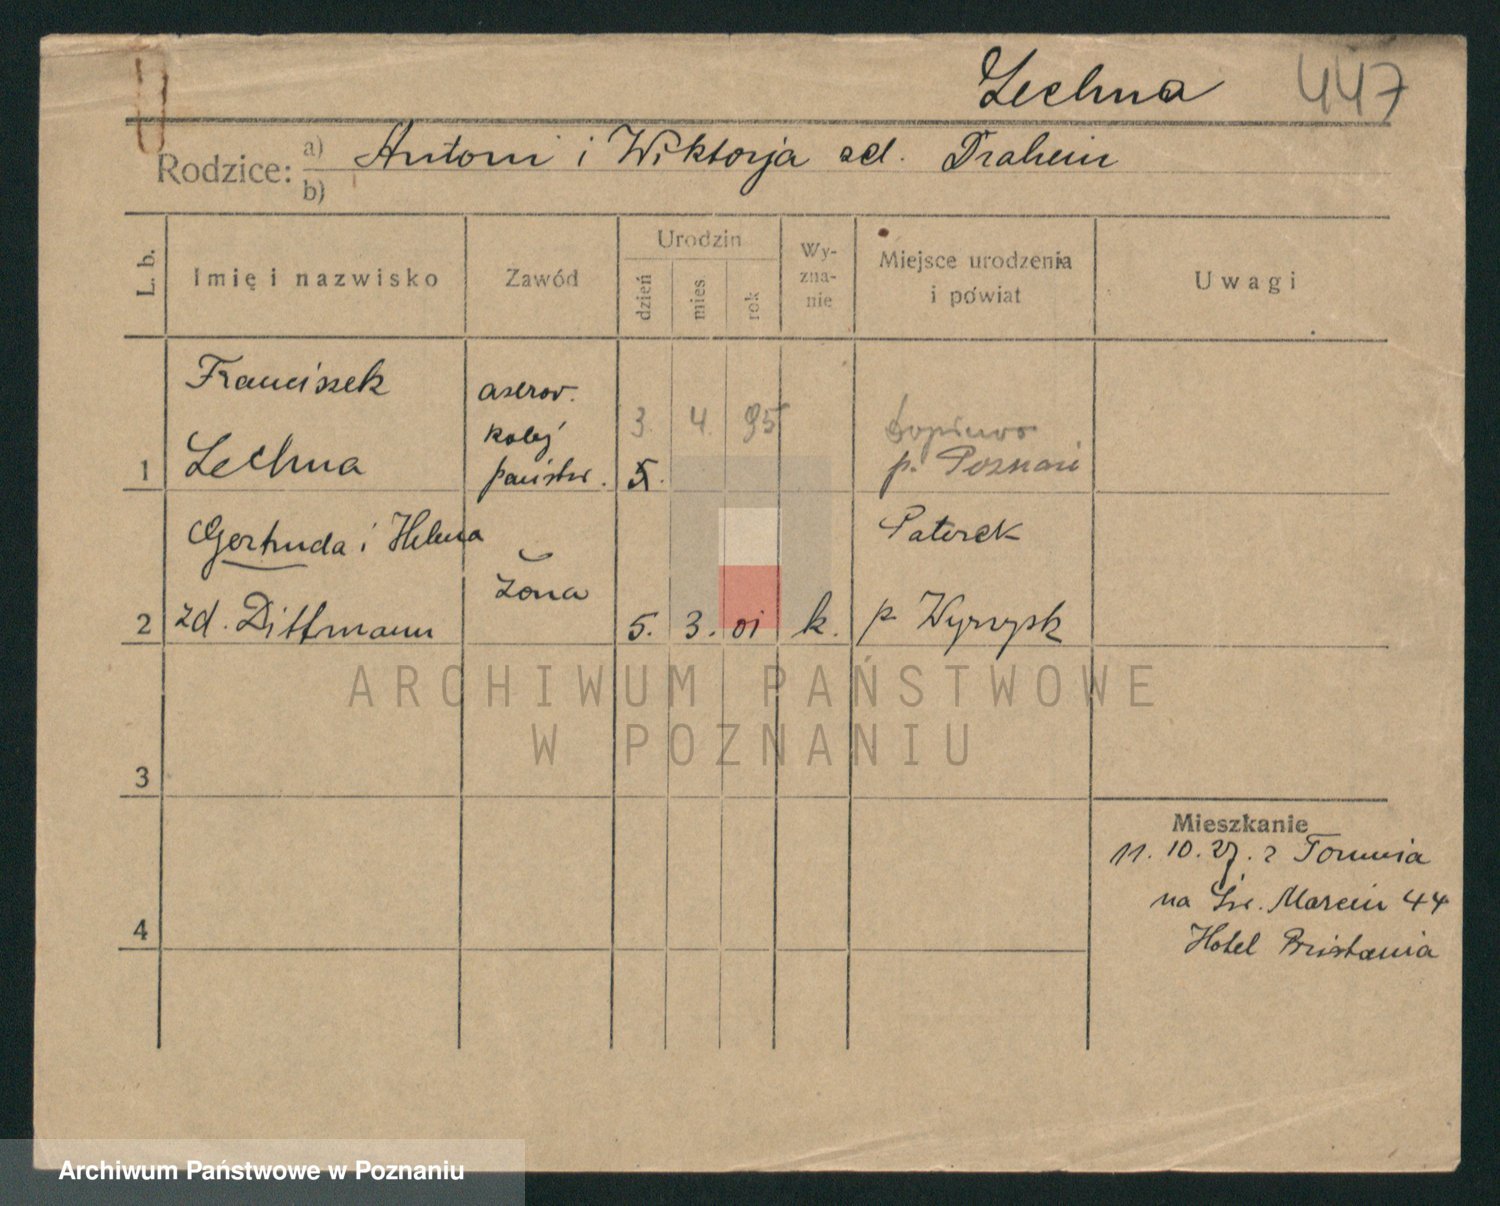 Lechna 447
Rodzice: a) Antoni i Wiktorja zd. Drahein
b)
L. b.
Imię i nazwisko
Zawód
Urodzin
dzień
mies
rok
Wy-
zna-
nie
Miejsce urodzenia
i powiat
Uwagi
Franciszek
Lechna
1
kolej
państw.
3. 4. 95
5.
Dopiewo
p. Poznań
Gertruda i Helena
zd. Dittmann
2
żona
5. 3. 01
k.
Paterek
p. Wyrzysk
3
4
Mieszkanie
11. 10. 27. z Torunia
na Św. Marcin 44
Hotel Britania
ARCHIWUM PAŃSTWOWE
W POZNANIU
Archiwum Państwowe w Poznaniu